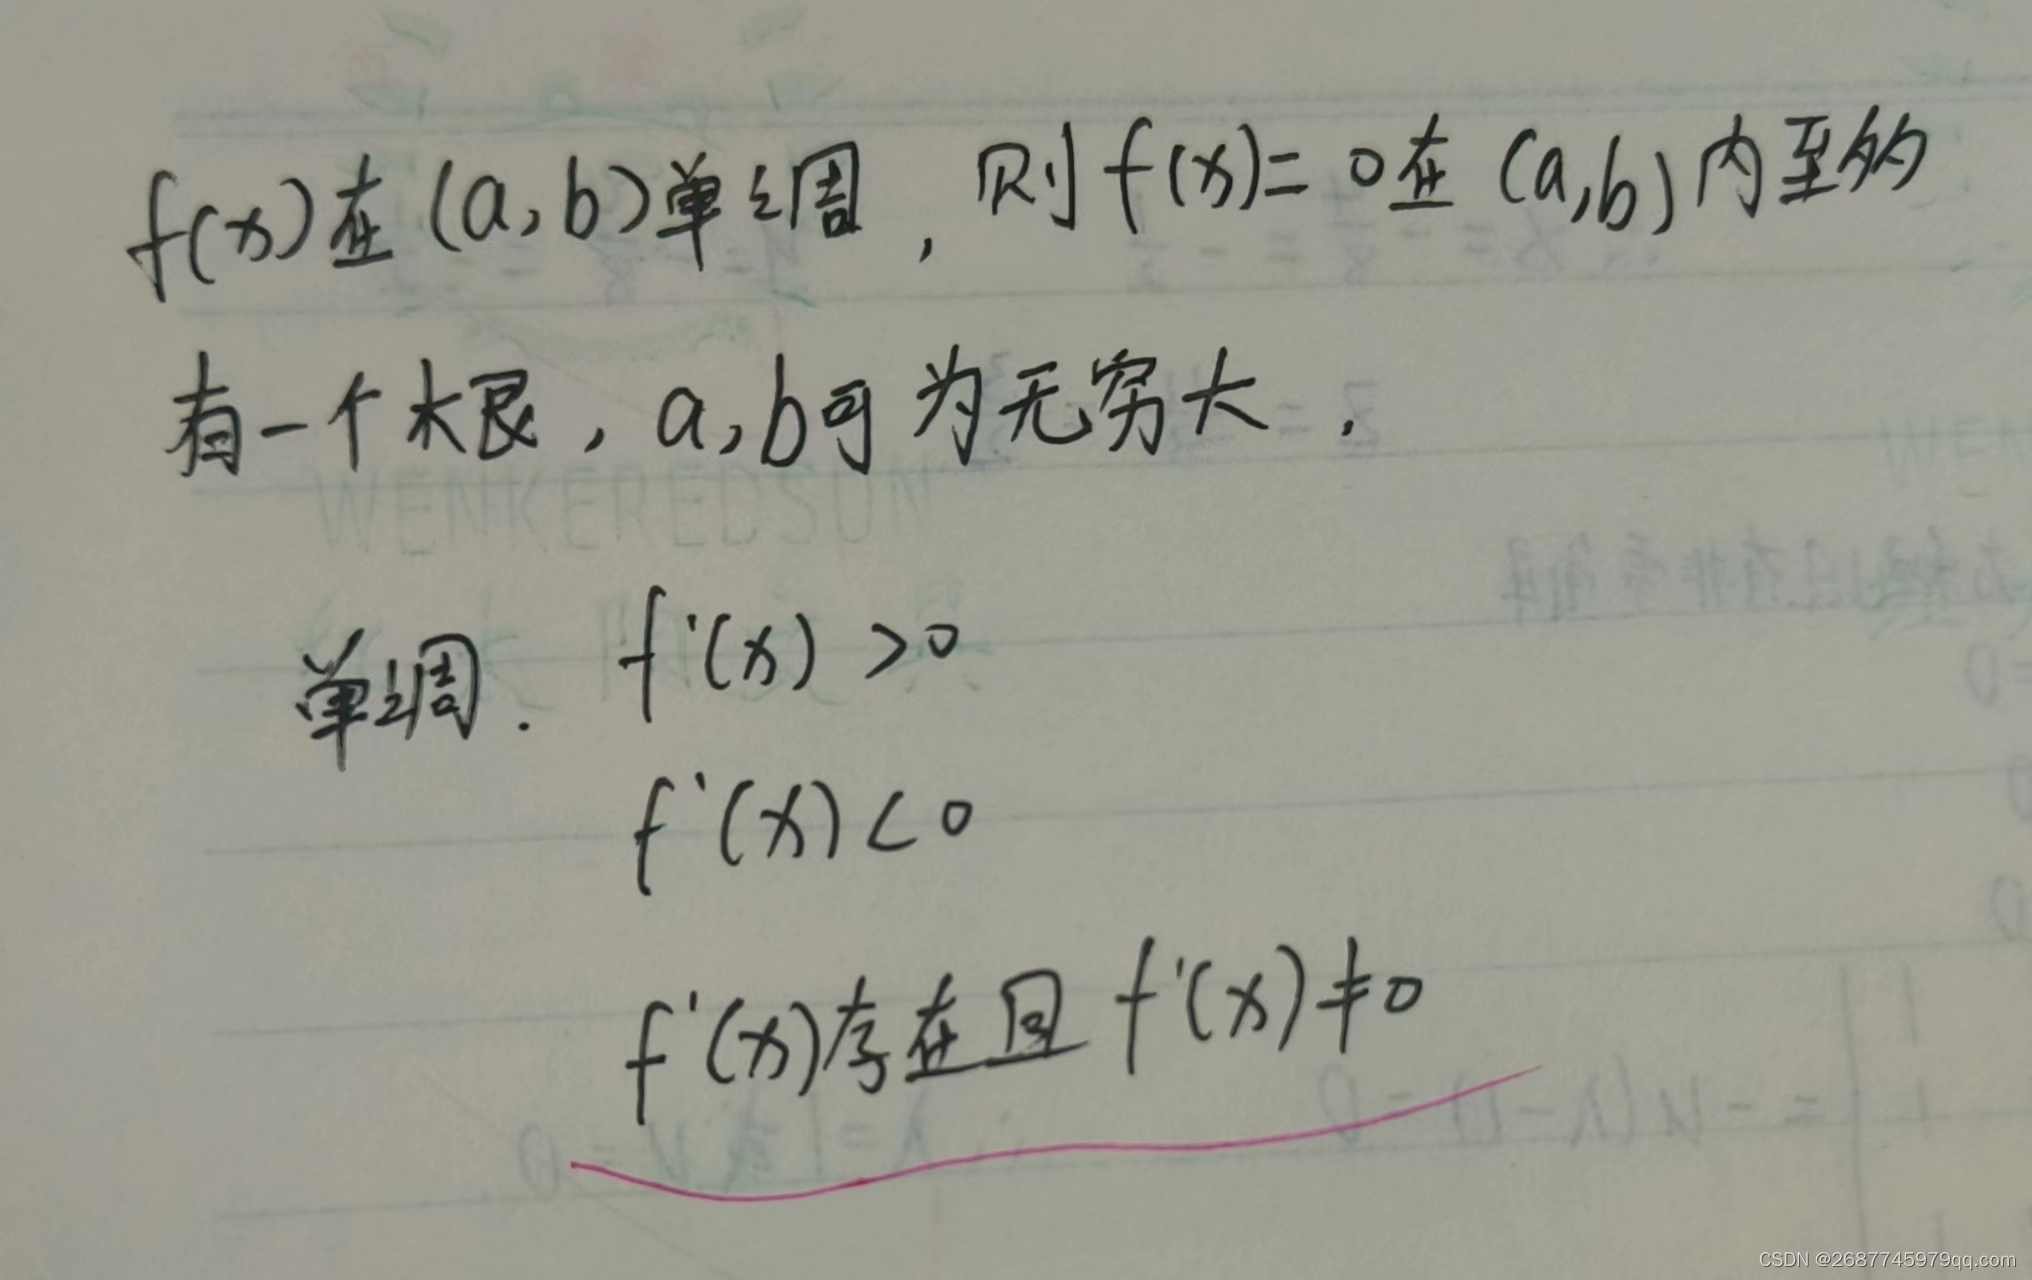 f(x)在(a,b)单调，则f(x)=0在(a,b)内至多
有一个根，a,b可为无穷大.
单调. f'(x)>0
f'(x)<0
f'(x)存在且f'(x)≠0
WENKEREDSUN
CSDN @2687745979qq.com